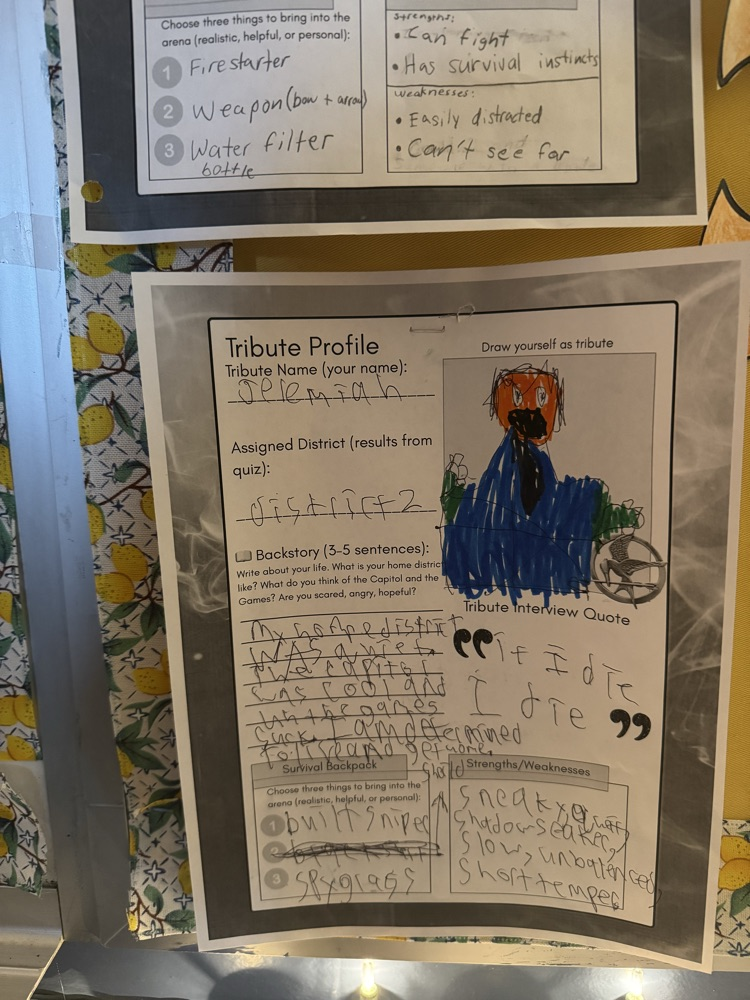 Choose three things to bring into the
arena (realistic, helpful, or personal):
1 Firestarter
2 Weapon (bow + arrow)
3 Water filter
bottle
Strengths:
• Can fight
• Has survival instincts
Weaknesses:
• Easily distracted
• Can't see far
Tribute Profile
Tribute Name (your name):
Jeremiah
Assigned District (results from
quiz):
district 2
Backstory (3-5 sentences):
Write about your life. What is your home distric
like? What do you think of the Capitol and the
Games? Are you scared, angry, hopeful?
My home district
was quiet.
the capitol
was cool and
the games
suck. I am determined
to and get home.
Draw yourself as tribute
Tribute Interview Quote
“If I die
I die”
Survival Backpack
Choose three things to bring into the
arena (realistic, helpful, or personal):
1 built sniper
2
3 spyglass
Strengths/Weaknesses
sneaky,
shadow seaker,
slow, unbalenced,
short temper